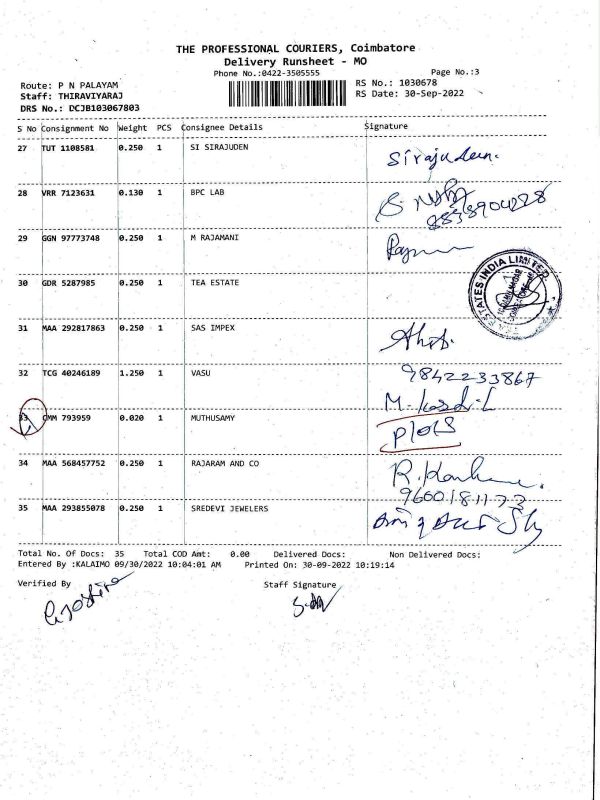 THE PROFESSIONAL COURIERS, Coimbatore
Delivery Runsheet - MO
Phone No.:0422-3505555
Page No.:3
Route: P N PALAYAM
RS No.: 1030678
Staff: THIRAVIYARAJ
RS Date: 30-Sep-2022
DRS No.: DCJB103067803
S No Consignment No Weight PCS Consignee Details Signature
27 TUT 1108581 0.250 1 SI SIRAJUDEN Sirajudeen.
28 VRR 7123631 0.130 1 BPC LAB
29 GGN 97773748 0.250 1 M RAJAMANI
30 GDR 5287985 0.250 1 TEA ESTATE
TEA ESTATES INDIA LIMITED
31 MAA 292817863 0.250 1 SAS IMPEX
32 TCG 40246189 1.250 1 VASU 9842233867
33 CMM 793959 0.020 1 MUTHUSAMY
34 MAA 568457752 0.250 1 RAJARAM AND CO
9600181173
35 MAA 293855078 0.250 1 SREDEVI JEWELERS
Total No. Of Docs: 35 Total COD Amt: 0.00 Delivered Docs: Non Delivered Docs:
Entered By :KALAIMO 09/30/2022 10:04:01 AM Printed On: 30-09-2022 10:19:14
Verified By Staff Signature